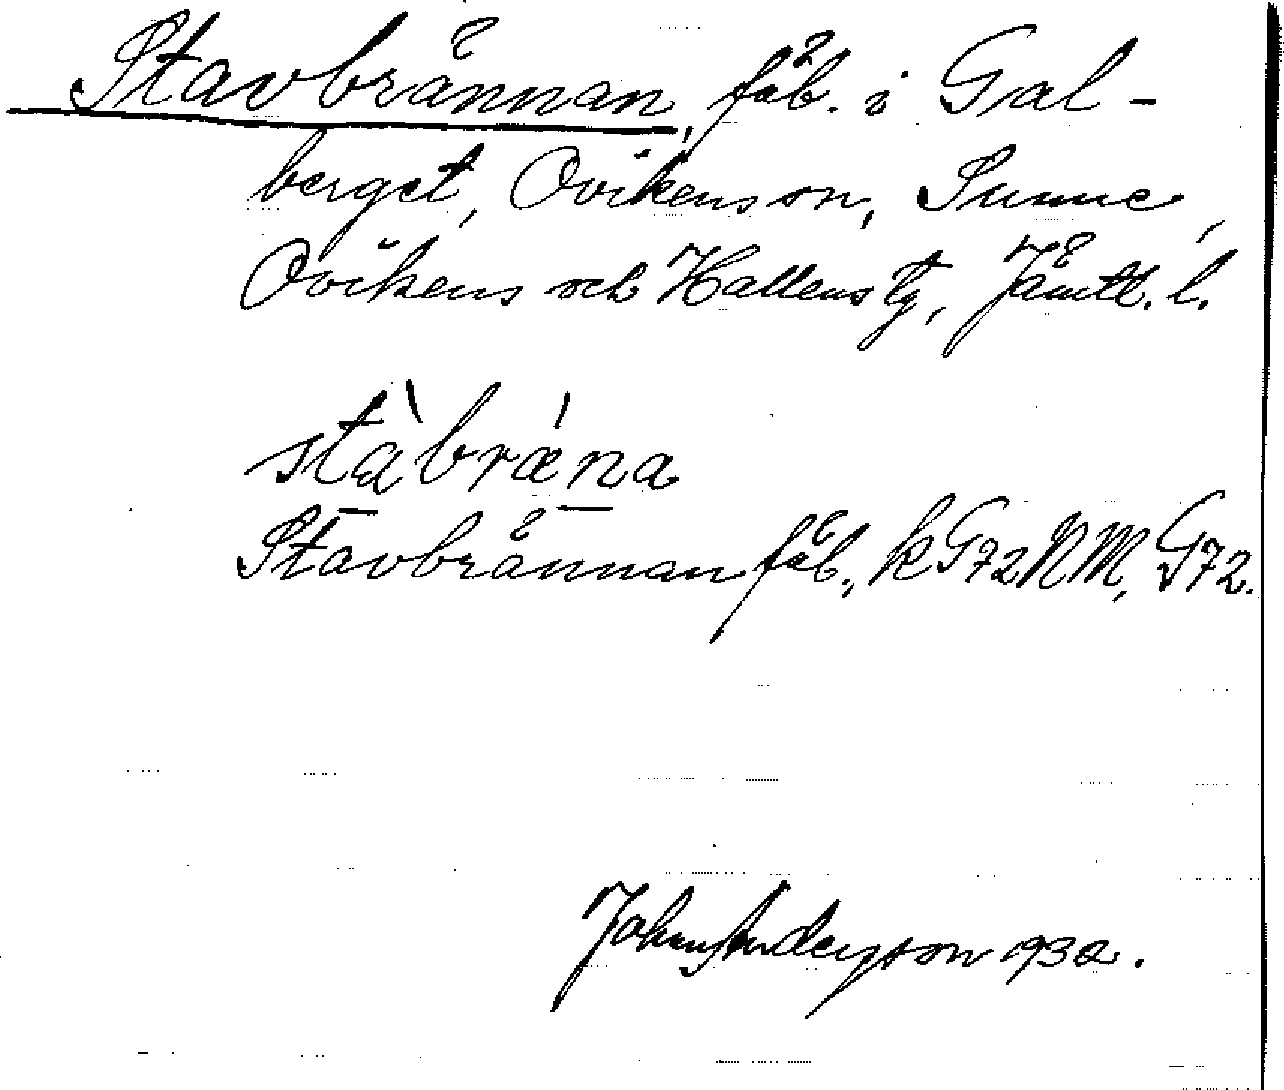 Stavbrännan, fäb. i Gal-
berget, Ovikens sn, Sunne,
Ovikens och Hallens tg, Jämtl. l.
stàbrǽna
Stavbrännan fäb., k G72NM, G72.
Johan Anderson 1932.